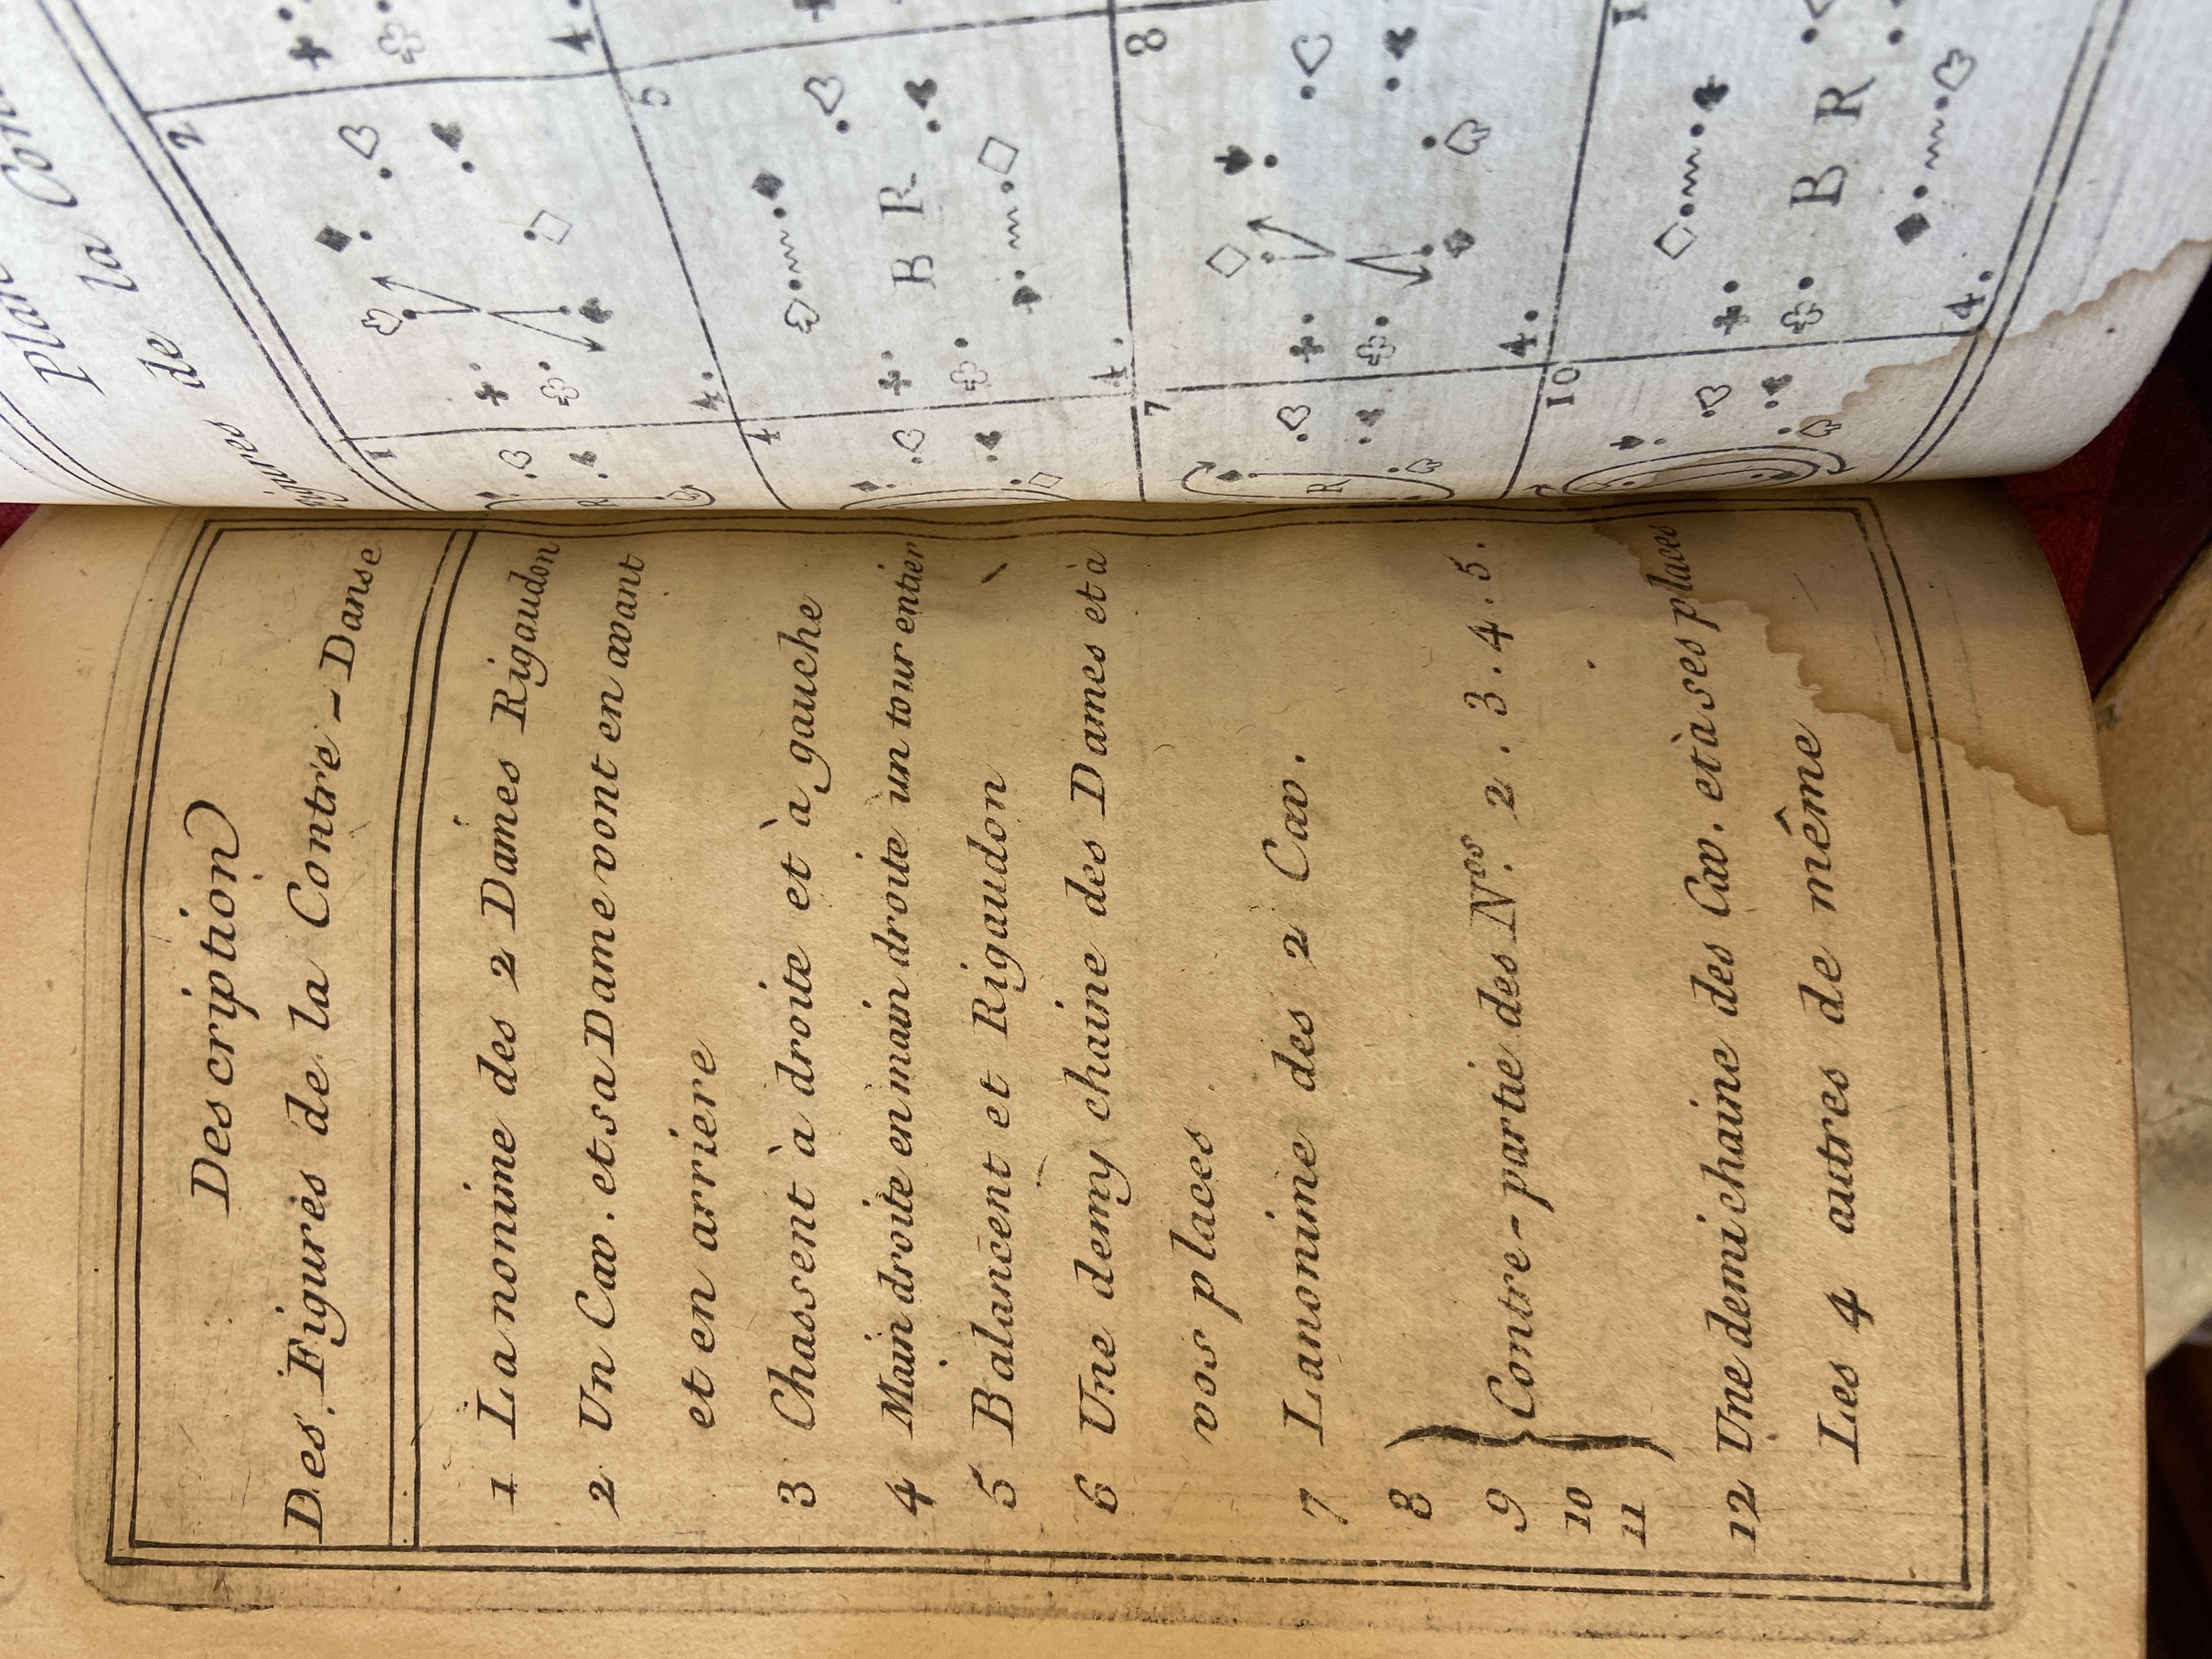 Description
Des Figures de la Contre-Danse
1 La nonime des 2 Dames Rigaudon
2 Un Cav. et sa Dame vont en avant
et en arriere
3 Chassent à droite et à gauche
4 Main droite en main droite un tour entier
5 Balancent et Rigaudon
6 Une demy chaine des Dames et à
vos places
7 Lanonime des 2 Cav.
8
9 Contre-partie des Nos. 2. 3. 4. 5.
10
11
12 Une demi chaine des Cav. et à ses places
Les 4 autres de même
de la
1
2
4.
4
5
B R
4.
7
8
4.
R
10
B R
4.